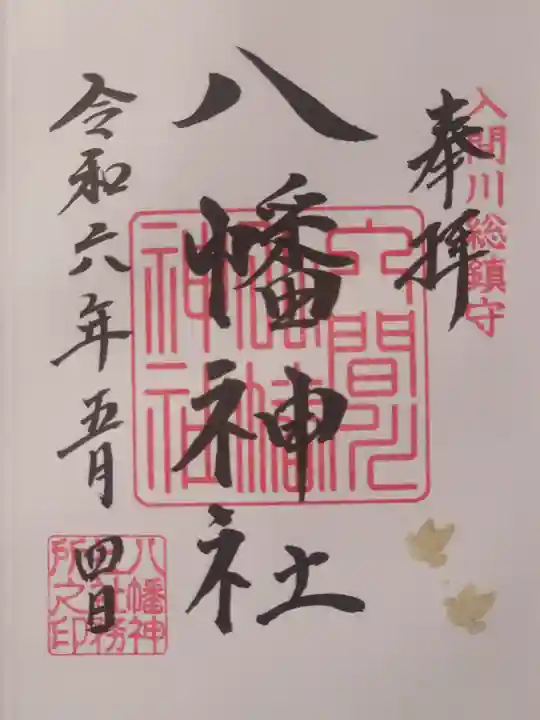 入間川総鎮守
奉拝
八幡神社
令和六年五月四日
八幡神
社社務
所之印